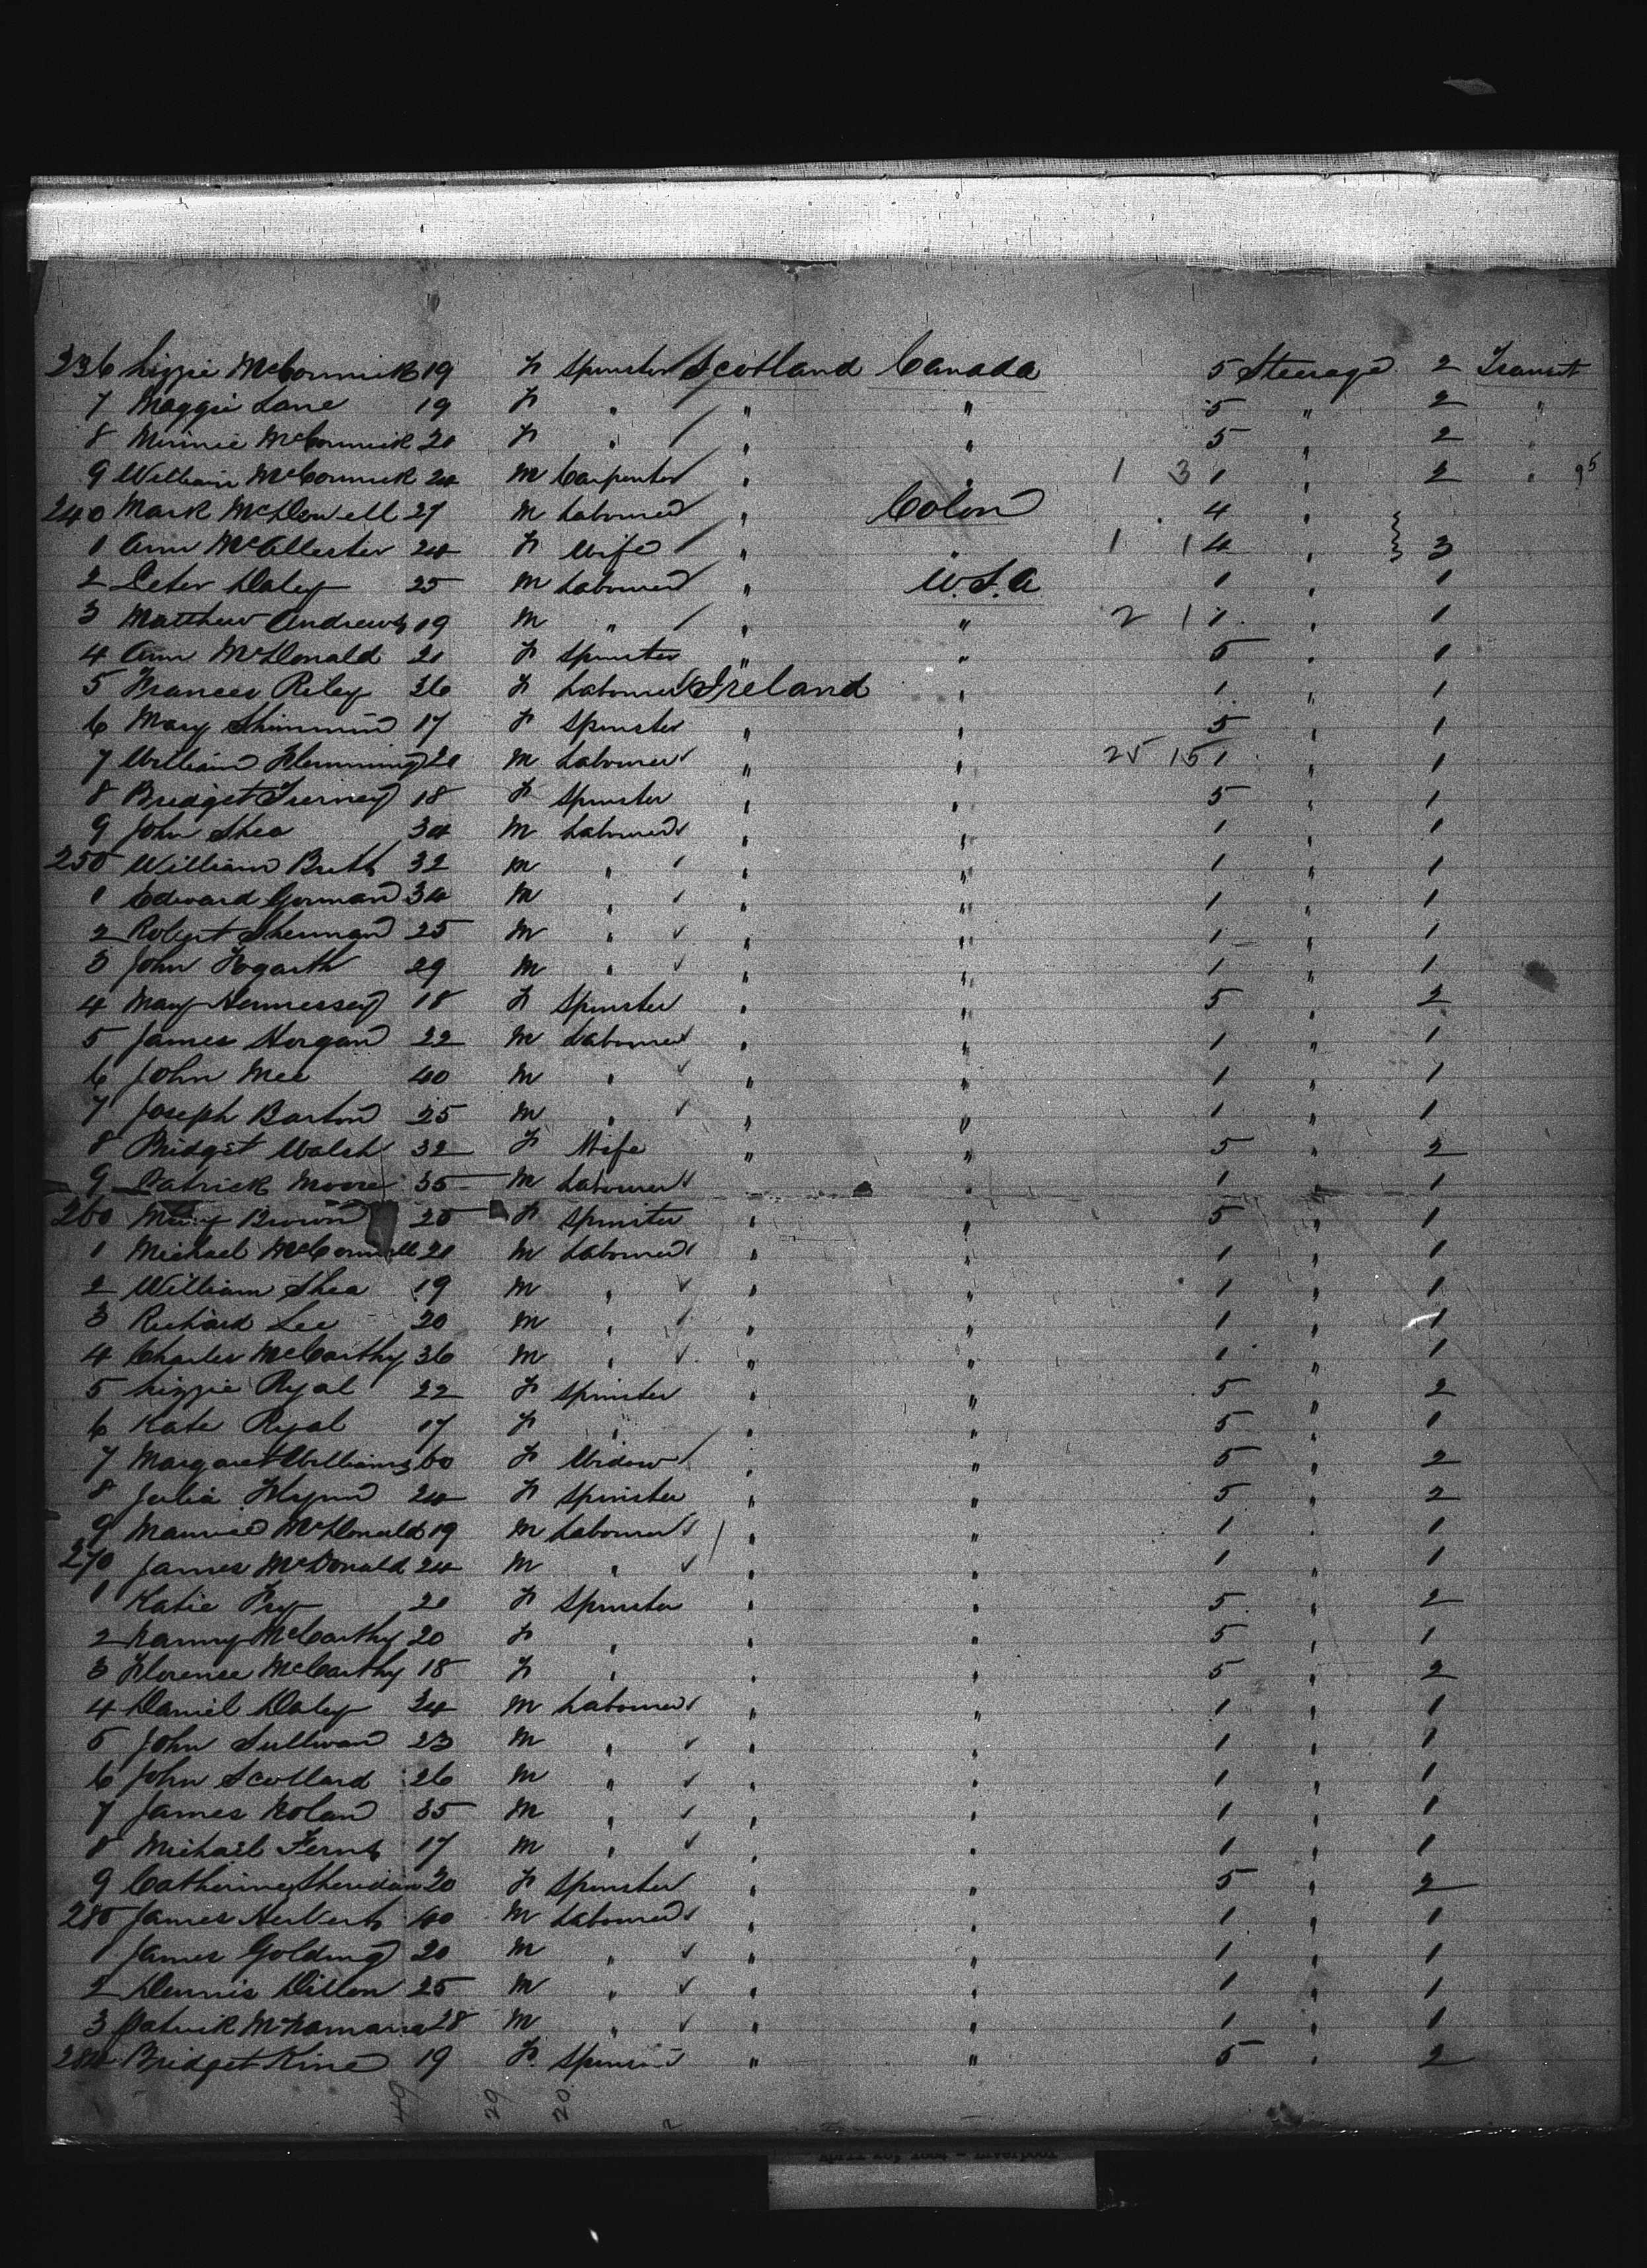 236 Lizzie McCormick 19 F Spinster Scotland Canada 5 Steerage 2 Transit
7 Maggie Lane 19 F " " " 5 " 2 "
8 Minnie McCormick 20 F " " " 5 " 2 "
9 William McCormick 24 M Carpenter " " 1 3 1 " 2 " 95
240 Mark McDowell 27 M Labourer " Colon 4 "
1 Ann McAllester 24 F Wife " " 1 1 4 " 3
2 Peter Daley 25 M Labourer " U.S.A 1 1
3 Matthew Andrews 19 M " " " 2 1 1 " 1
4 Ann McDonald 21 F Spinster " " 5 " 1
5 Frances Riley 36 F Labourer Ireland " 1 " 1
6 Mary 17 F Spinster " " 5 " 1
7 William Flemming 20 M Labourer " " 25 15 1 " 1
8 Bridget Tierney 18 F Spinster " " 5 " 1
9 John Shea 34 M Labourer " " 1 " 1
250 William 32 M " " " 1 " 1
1 Edward Gorman 34 M " " " 1 " 1
2 Robert Sherman 25 M " " " 1 " 1
3 John Hogarth 29 M " " " 1 " 1
4 Mary Hennessey 18 F Spinster " " 5 " 2
5 James Horgan 22 M Labourer " " 1 " 1
6 John Mee 40 M " " " 1 " 1
7 Joseph Barton 25 M " " " 1 " 1
8 Bridget Walsh 32 F Wife " " 5 " 2
9 Patrick Moore 35 M Labourer " " 1 " 1
260 Mary Brown 25 F Spinster " " 5 " 1
1 Michael 21 M Labourer " " 1 " 1
2 William Shea 19 M " " " 1 " 1
3 Richard Lee 20 M " " " 1 " 1
4 Charles McCarthy 36 M " " " 1 " 1
5 Lizzie Ryal 22 F Spinster " " 5 " 2
6 Kate Ryal 17 F " " " 5 " 1
7 Margaret Williams 60 F Widow " " 5 " 2
8 Julia Flynn 24 F Spinster " " 5 " 2
9 Maurice McDonald 19 M Labourer " " 1 " 1
270 James McDonald 24 M " " " 1 " 1
1 Katie 20 F Spinster " " 5 " 2
2 McCarthy 20 F " " " 5 " 1
3 Florence McCarthy 18 F " " " 5 " 2
4 Daniel Daley 24 M Labourer " " 1 " 1
5 John Sullivan 23 M " " " 1 " 1
6 John Scollard 26 M " " " 1 " 1
7 James Nolan 35 M " " " 1 " 1
8 Michael Ferns 17 M " " " 1 " 1
9 Catherine Sheridan 20 F Spinster " " 5 " 2
280 James Herbert 40 M Labourer " " 1 " 1
1 James Golding 20 M " " " 1 " 1
2 Dennis Dillon 25 M " " " 1 " 1
3 Patrick McNamara 28 M " " " 1 " 1
284 Bridget King 19 F Spinster " " 5 " 2
49 29 20